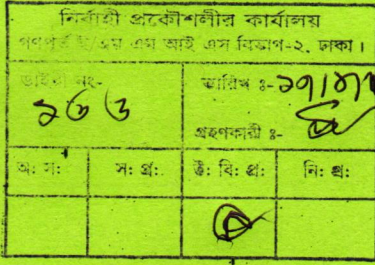 নির্বাহী প্রকৌশলীর কার্যালয়
গণপূর্ত ই/এম এম আই এস বিভাগ-২, ঢাকা।
ডাইরী নং- তারিখ ঃ-
১৩৩
গ্রহণকারী ঃ-
অ: স: স: প্র: উ: বি: প্র: নি: প্র: